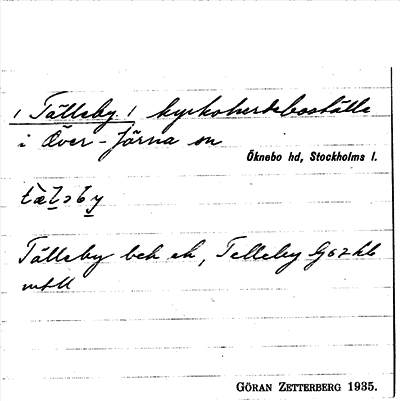 / Tälleby / kyrkoherdeboställe
i Över-Järna sn
Öknebo hd, Stockholms l.
tæ̀ḷəby
Tälleby bek ek, Telleby
GÖRAN ZETTERBERG 1935.